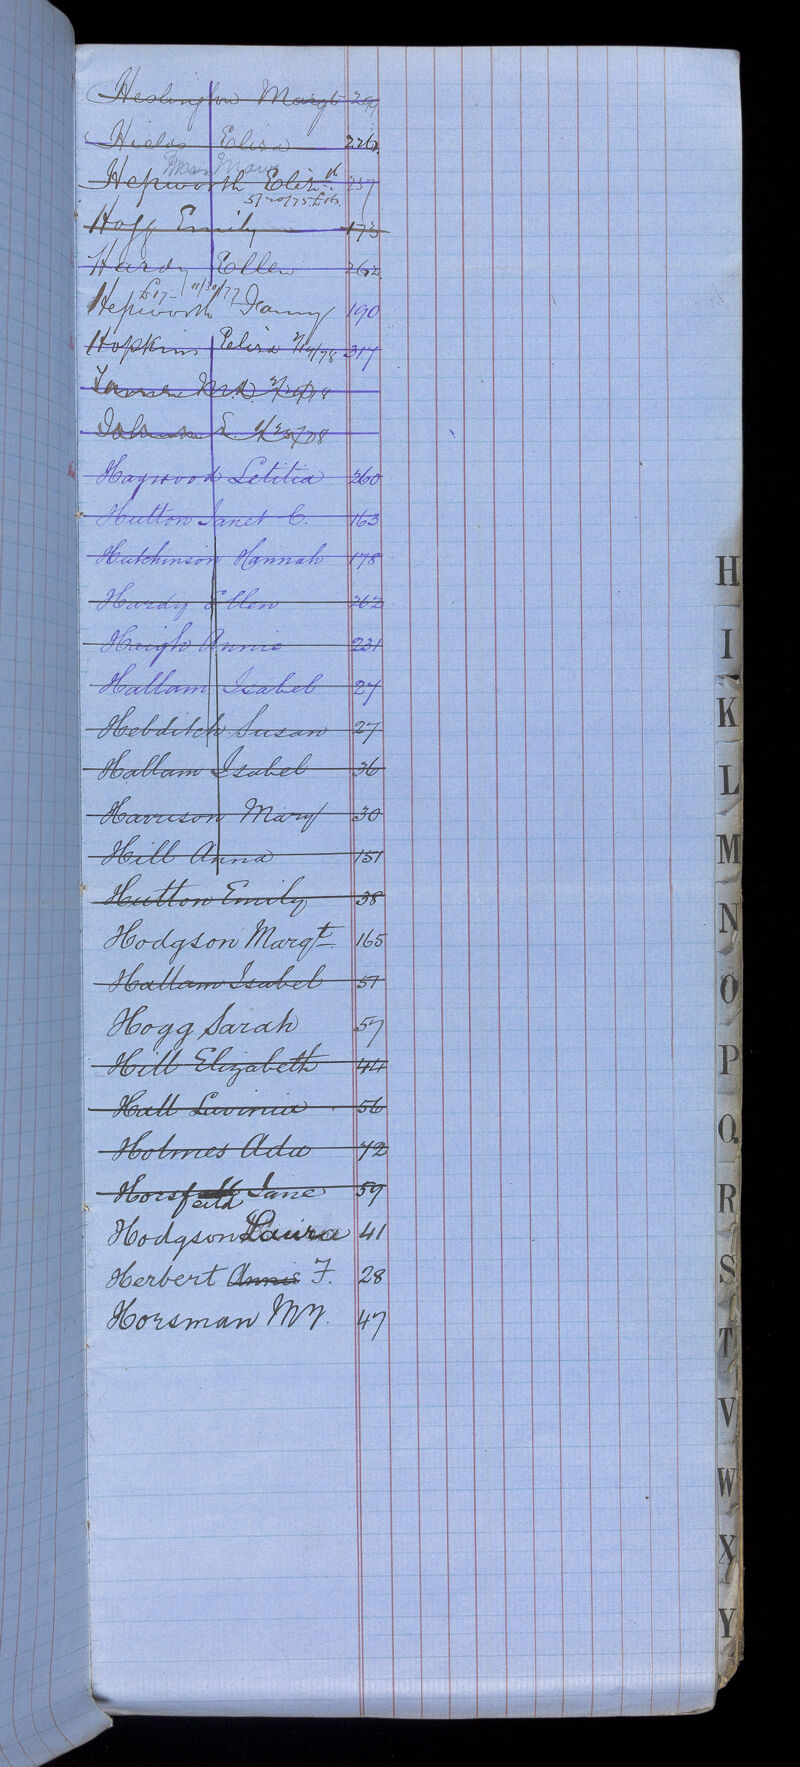 Heslington Margt 294
Hields Eliza 226
Hepworth Eliz.th 257
5/20/75 £16.
Hogg Emily 173
Hardy Ellen 262
£17- 11/30/77
Hepworth Fanny 190
Hopkins Eliza 317
Haywood Letitia 260
Hutton Janet C. 163
Hutchinson Hannah 178
Hardy Ellen 262
Haigh Annie 231
Hallam Isabel 27
Hebditch Susan 27
Hallam Isabel 36
Harrison Mary 30
Hill Anna 151
Hutton Emily 38
Hodgson Margt 165
Hallam Isabel 51
Hogg Sarah 57
Hill Elizabeth 44
Hall Lavinia 56
Holmes Ada 72
Horsfeild Jane 59
Hodgson Laura 41
Herbert Annie F. 28
Horsman 47
H
I
K
L
M
N
O
P
Q
R
S
T
V
W
X
Y